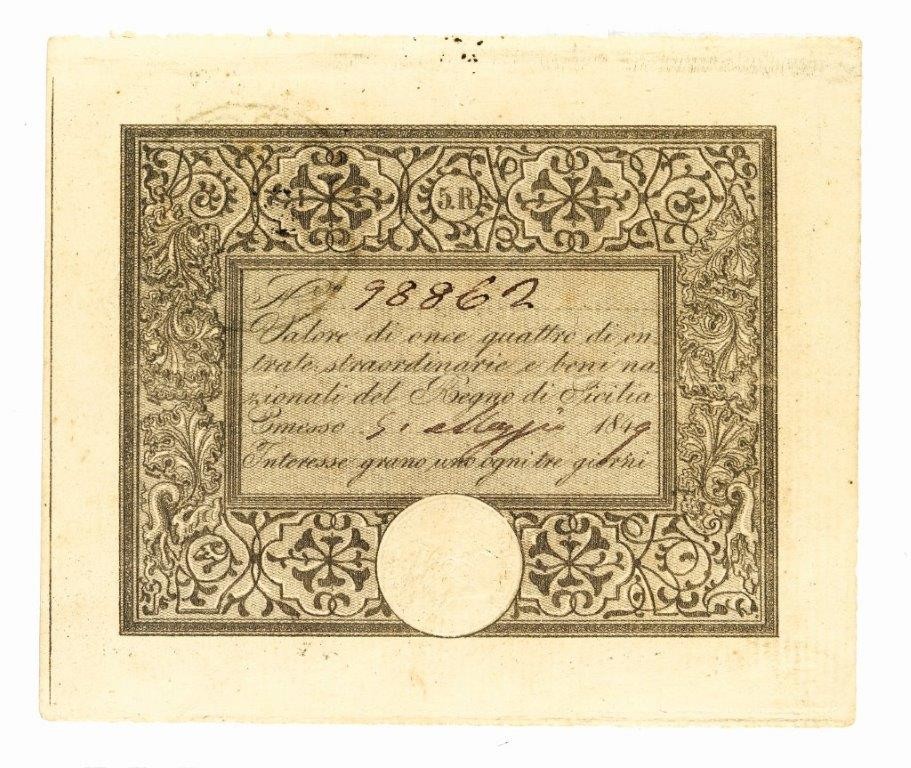 5.R
N.º 98862
Valore di once quattro di en
trate straordinarie e beni na
zionali del Regno di Sicilia
Emesso 5. Maggio 1849
Interesse grano uno ogni tre giorni